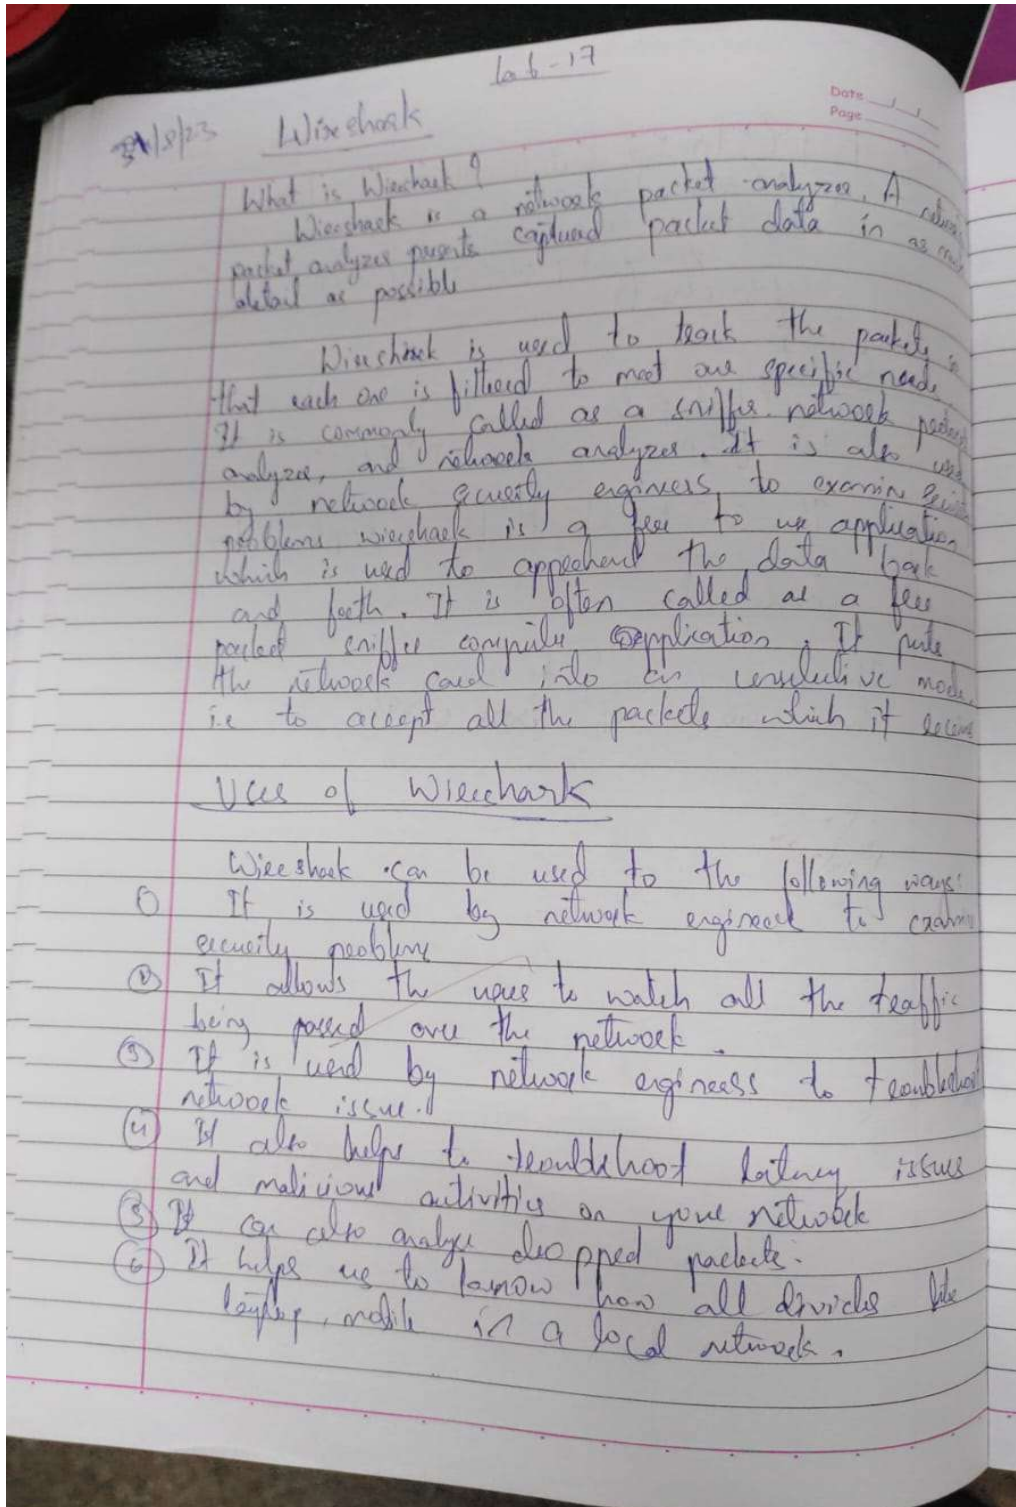 Lab-17
Date
Page
31/8/23 Wireshark
What is Wireshark?
Wireshark is a network packet analyzer. A network
packet analyzer presents captured packet data in as much
detail as possible
Wireshark is used to track the packets so
that each one is filtered to meet our specific needs.
It is commonly called as a sniffer. network packet
analyzer, and network analyzer. It is also used
by network security engineers to examine security
problems wireshark is a free to use application
which is used to apprehend the data back
and forth. It is often called as a free
packet sniffer computer application. It puts
the network card into an unselective mode.
i.e to accept all the packets which it receives
Uses of Wireshark
Wireshark can be used to the following ways:
① It is used by network engineers to examine
security problems
② It allows the users to watch all the traffic
being passed over the network.
③ It is used by network engineers to troubleshoot
network issue.
④ It also helps to troubleshoot latency issues
and malicious activities on your network
⑤ It can also analyze dropped packets.
⑥ It helps us to know how all devices like
laptop, mobile in a local network.